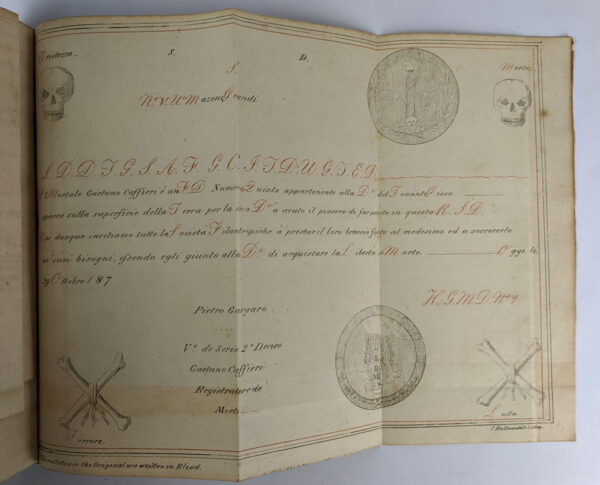 Tristezza. S. D. Morte.
S.
N.º V. Uº Mazoni Grandi
S. D. D. T. G. S. A. F. G. C. I. T. D. U. G. T. E. D.
Il Mortale Gaetano Caffieri è un F. D. Numero Quinto appartenente alla D.º del Tonante Giove
sparsa sulla superficie della Terra per la sua D.º à avuto il piacere di far parte in questa R. S. D.
Noi dunque invitiamo tutte le Società Filantropiche à prestar il loro braccio forte al medesimo ed a soccorerlo
ne' suoi bisogni, essendo egli giunto alla D.º di acquistare la Libertà o Morte. Oggi li
29 Ottobro 1817
H. G. M. D. Nº 1
Pietro Gargaro
Vº de Serio 2º Deciso
Gaetano Caffieri
Registratore de'
Morti
Terrore. Lutto.
The red letters in the Original are written in Blood.